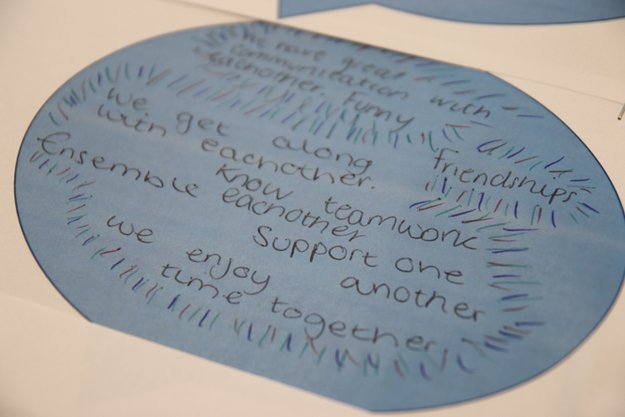 we have great
communication with
eachother. Funny
we get along
with eachother.
friendships
Ensemble know teamwork
eachother
Support one
another
we enjoy
time together